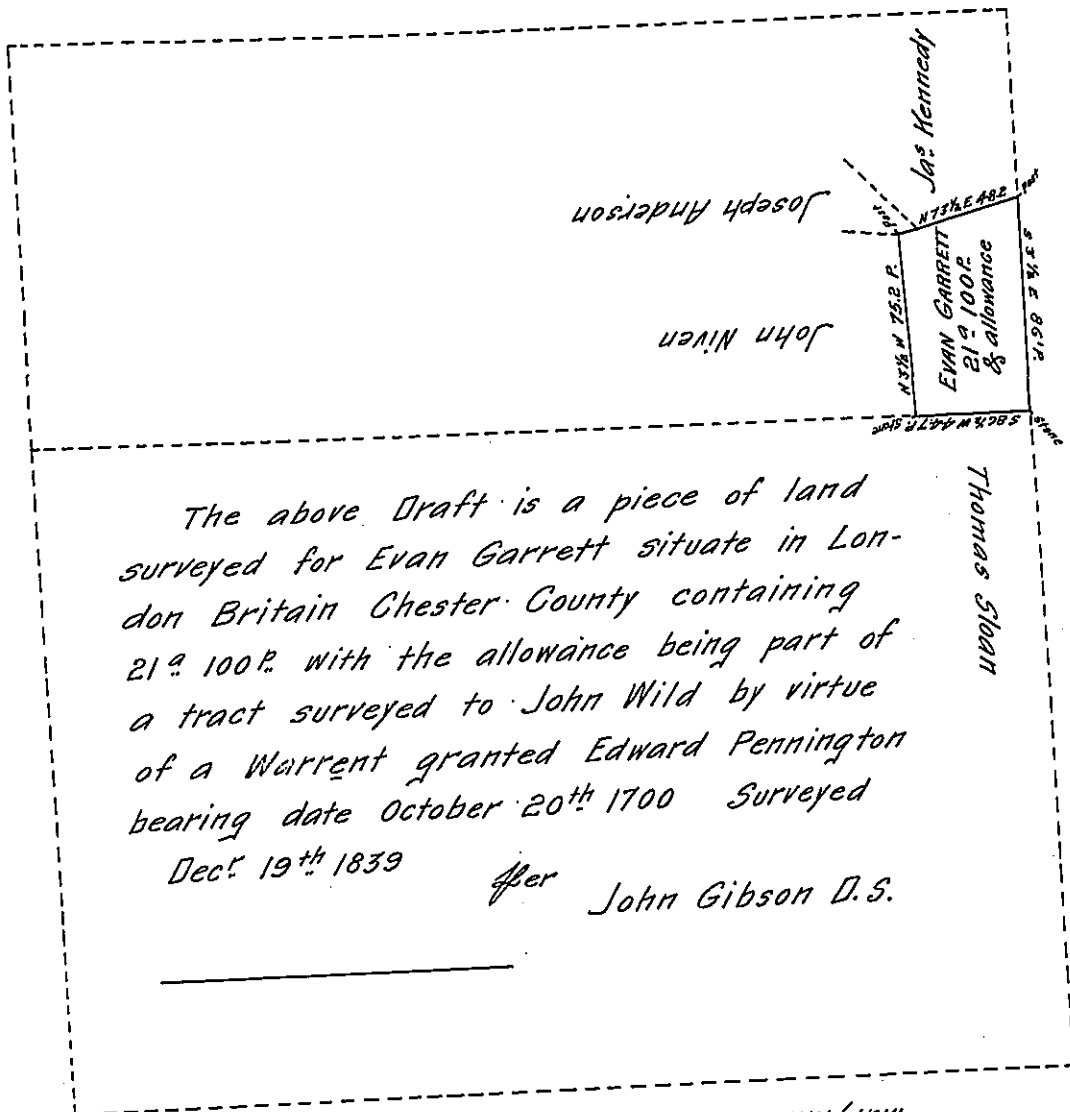 Jas. Kennedy
Joseph Anderson
John Niven
Post
N 73½ E 48.2
Post
N 3½ W 75.2 P.
EVAN GARRETT
21a 100P.
& allowance
S 3½ E 86 P.
Stone
S 86½ W 44.7 P.
Stone
Thomas Sloan
The above Draft is a piece of land
surveyed for Evan Garrett situate in Lon-
don Britain Chester County containing
21a 100P. with the allowance being part of
a tract surveyed to John Wild by virtue
of a Warrent granted Edward Pennington
bearing date October 20th 1700 Surveyed
Decr. 19th 1839
Per
John Gibson D.S.